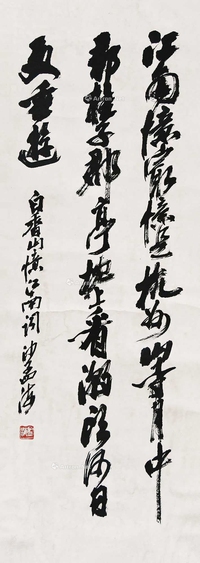 江南憶最憶是杭州山寺月中
尋桂子郡亭枕上看潮頭何日
更重遊
白香山憶江南詞 沙孟海